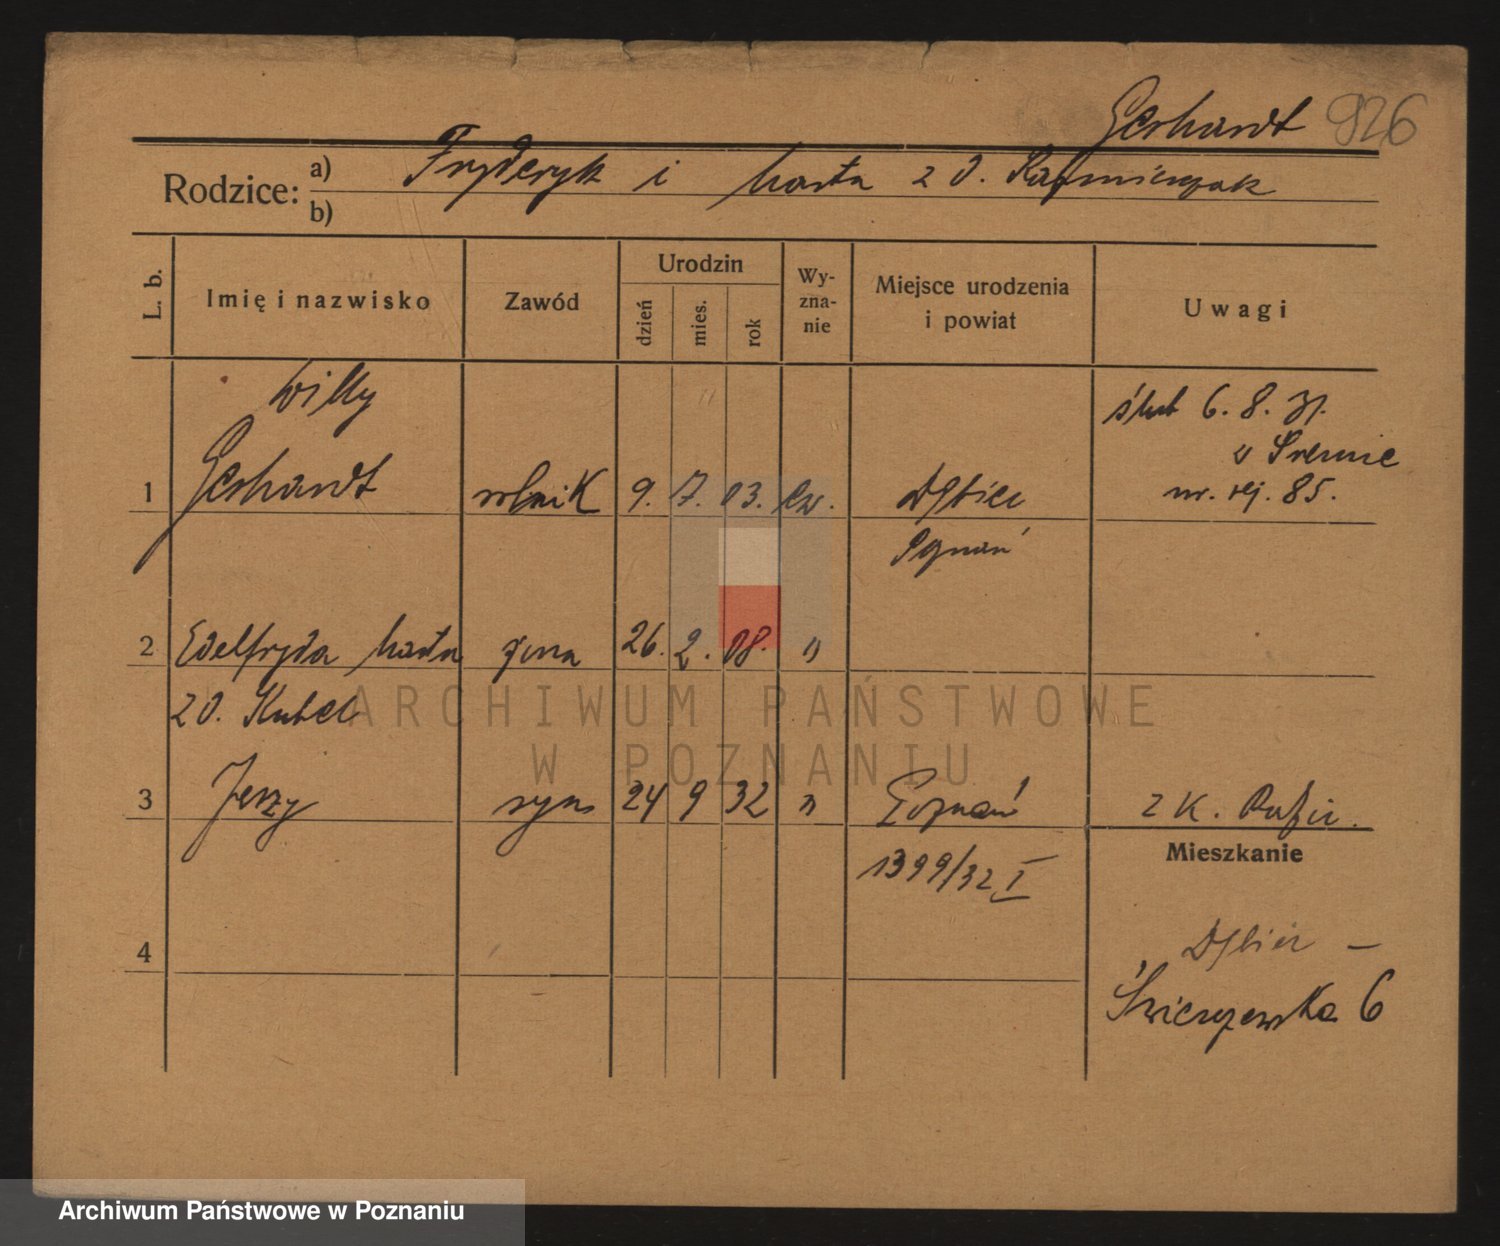 Gerhardt 926
Rodzice: a) Fryderyk i Marta z d. Kaźmierczak
b)
L. b.
Imię i nazwisko
Zawód
Urodzin
dzień
mies.
rok
Wy-
zna-
nie
Miejsce urodzenia
i powiat
Uwagi
Willy
ślub 6. 8. 31.
w Śremie
1 Gerhardt rolnik 9. 7. 03. ew. Dębiec nr. rej. 85.
Poznań
2 Edelfryda Marta żona 26. 2. 08. "
z d. Kubel
3 Jerzy syn 24 9 32 " Poznań z K.
Mieszkanie
1399/32 I
4
Dębiec —
Świerczewska 6
ARCHIWUM PAŃSTWOWE
W POZNANIU
Archiwum Państwowe w Poznaniu